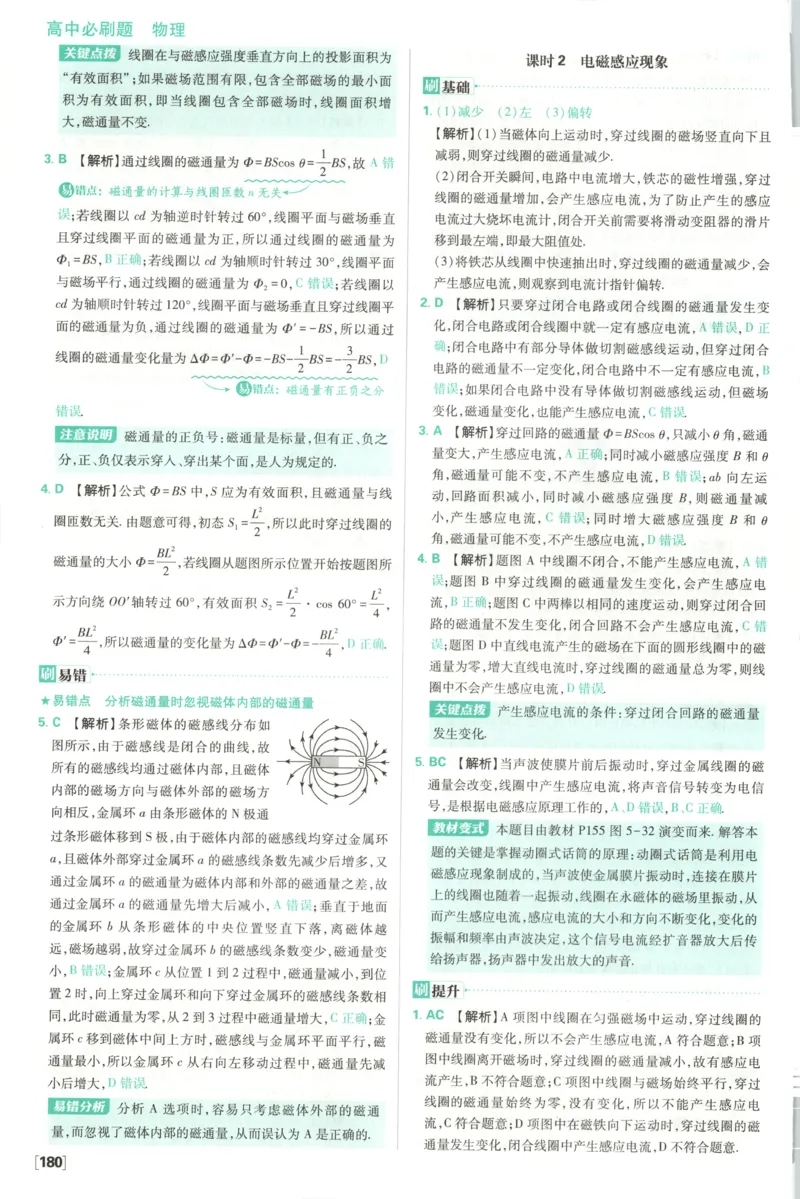 高中必刷题 物理
关键点拨 线圈在与磁感应强度垂直方向上的投影面积为
“有效面积”;如果磁场范围有限,包含全部磁场的最小面
积为有效面积,即当线圈包含全部磁场时,线圈面积增
大,磁通量不变.
3. B 【解析】通过线圈的磁通量为 Φ=BScos θ=1/2 BS,故 A 错
易错点:磁通量的计算与线圈匝数 n 无关
误;若线圈以 cd 为轴逆时针转过 60°,线圈平面与磁场垂直
且穿过线圈平面的磁通量为正,所以通过线圈的磁通量为
Φ₁=BS,B 正确;若线圈以 cd 为轴顺时针转过 30°,线圈平面
与磁场平行,通过线圈的磁通量为 Φ₂=0,C 错误;若线圈以
cd 为轴顺时针转过 120°,线圈平面与磁场垂直且穿过线圈平
面的磁通量为负,通过线圈的磁通量为 Φ′=-BS,所以通过
线圈的磁通量变化量为 ΔΦ=Φ′-Φ=-BS-1/2 BS=-3/2 BS,D
易错点:磁通量有正负之分
错误.
注意说明 磁通量的正负号:磁通量是标量,但有正、负之
分,正、负仅表示穿入、穿出某个面,是人为规定的.
4. D 【解析】公式 Φ=BS 中,S 应为有效面积,且磁通量与线
圈匝数无关. 由题意可得,初态 S₁=L²/2,所以此时穿过线圈的
磁通量的大小 Φ=BL²/2,若线圈从题图所示位置开始按题图所
示方向绕 OO′轴转过 60°,有效面积 S₂=L²/2 · cos 60°=L²/4,
Φ′=BL²/4,所以磁通量的变化量为 ΔΦ=Φ′-Φ=-BL²/4,D 正确.
刷 易错
★易错点 分析磁通量时忽视磁体内部的磁通量
5. C 【解析】条形磁体的磁感线分布如
图所示,由于磁感线是闭合的曲线,故
所有的磁感线均通过磁体内部,且磁体
内部的磁场方向与磁体外部的磁场方
向相反,金属环 a 由条形磁体的 N 极通
N S
过条形磁体移到 S 极,由于磁体内部的磁感线均穿过金属环
a,且磁体外部穿过金属环 a 的磁感线条数先减少后增多,又
通过金属环 a 的磁通量为磁体内部和外部的磁通量之差,故
通过金属环 a 的磁通量先增大后减小,A 错误;垂直于地面
的金属环 b 从条形磁体的中央位置竖直下落,离磁体越
远,磁场越弱,故穿过金属环 b 的磁感线条数变少,磁通量变
小,B 错误;金属环 c 从位置 1 到 2 过程中,磁通量减小,到位
置 2 时,向上穿过金属环和向下穿过金属环的磁感线条数相
同,此时磁通量为零,从 2 到 3 过程中磁通量增大,C 正确;金
属环 c 移到磁体中间上方时,磁感线与金属环平面平行,磁
通量最小,所以金属环 c 从右向左移动过程中,磁通量先减
小后增大,D 错误.
易错分析 分析 A 选项时,容易只考虑磁体外部的磁通
量,而忽视了磁体内部的磁通量,从而误认为 A 是正确的.
[180]
课时2 电磁感应现象
刷 基础
1. (1)减少 (2)左 (3)偏转
【解析】(1)当磁体向上运动时,穿过线圈的磁场竖直向下且
减弱,则穿过线圈的磁通量减少.
(2)闭合开关瞬间,电路中电流增大,铁芯的磁性增强,穿过
线圈的磁通量增加,会产生感应电流,为了防止产生的感应
电流过大烧坏电流计,闭合开关前需要将滑动变阻器的滑片
移到最左端,即最大阻值处.
(3)将铁芯从线圈中快速抽出时,穿过线圈的磁通量减少,会
产生感应电流,则观察到电流计指针偏转.
2. D 【解析】只要穿过闭合电路或闭合线圈的磁通量发生变
化,闭合电路或闭合线圈中就一定有感应电流,A 错误,D 正
确;闭合电路中有部分导体做切割磁感线运动,但穿过闭合
电路的磁通量不一定变化,闭合电路中不一定有感应电流,B
错误;如果闭合电路中没有导体做切割磁感线运动,但磁场
变化,磁通量变化,也能产生感应电流,C 错误.
3. A 【解析】穿过回路的磁通量 Φ=BScos θ,只减小 θ 角,磁通
量变大,产生感应电流,A 正确;同时减小磁感应强度 B 和 θ
角,磁通量可能不变,不产生感应电流,B 错误;ab 向左运
动,回路面积减小,同时减小磁感应强度 B,则磁通量减
小,产生感应电流,C 错误;同时增大磁感应强度 B 和 θ
角,磁通量可能不变,不产生感应电流,D 错误.
4. B 【解析】题图 A 中线圈不闭合,不能产生感应电流,A 错
误;题图 B 中穿过线圈的磁通量发生变化,会产生感应电
流,B 正确;题图 C 中两棒以相同的速度运动,则穿过闭合回
路的磁通量不发生变化,闭合回路不会产生感应电流,C 错
误;题图 D 中直线电流产生的磁场在下面的圆形线圈中的磁
通量为零,增大直线电流时,穿过线圈的磁通量总为零,则线
圈中不会产生感应电流,D 错误.
关键点拨 产生感应电流的条件:穿过闭合回路的磁通量
发生变化.
5. BC 【解析】当声波使膜片前后振动时,穿过金属线圈的磁
通量会改变,线圈中产生感应电流,将声音信号转变为电信
号,是根据电磁感应原理工作的,A、D 错误,B、C 正确.
教材变式 本题目由教材 P155 图 5-32 演变而来. 解答本
题的关键是掌握动圈式话筒的原理:动圈式话筒是利用电
磁感应现象制成的,当声波使金属膜片振动时,连接在膜片
上的线圈也随着一起振动,线圈在永磁体的磁场里振动,从
而产生感应电流,感应电流的大小和方向不断变化,变化的
振幅和频率由声波决定,这个信号电流经扩音器放大后传
给扬声器,扬声器中发出放大的声音.
刷 提升
1. AC 【解析】A 项图中线圈在匀强磁场中运动,穿过线圈的
磁通量没有变化,所以不会产生感应电流,A 符合题意;B 项
图中线圈离开磁场时,穿过线圈的磁通量减小,故有感应电
流产生,B 不符合题意;C 项图中线圈与磁场始终平行,穿过
线圈的磁通量始终为零,没有变化,所以不能产生感应电
流,C 符合题意;D 项图中在磁铁向下运动时,穿过线圈的磁
通量发生变化,闭合线圈中产生感应电流,D 不符合题意.